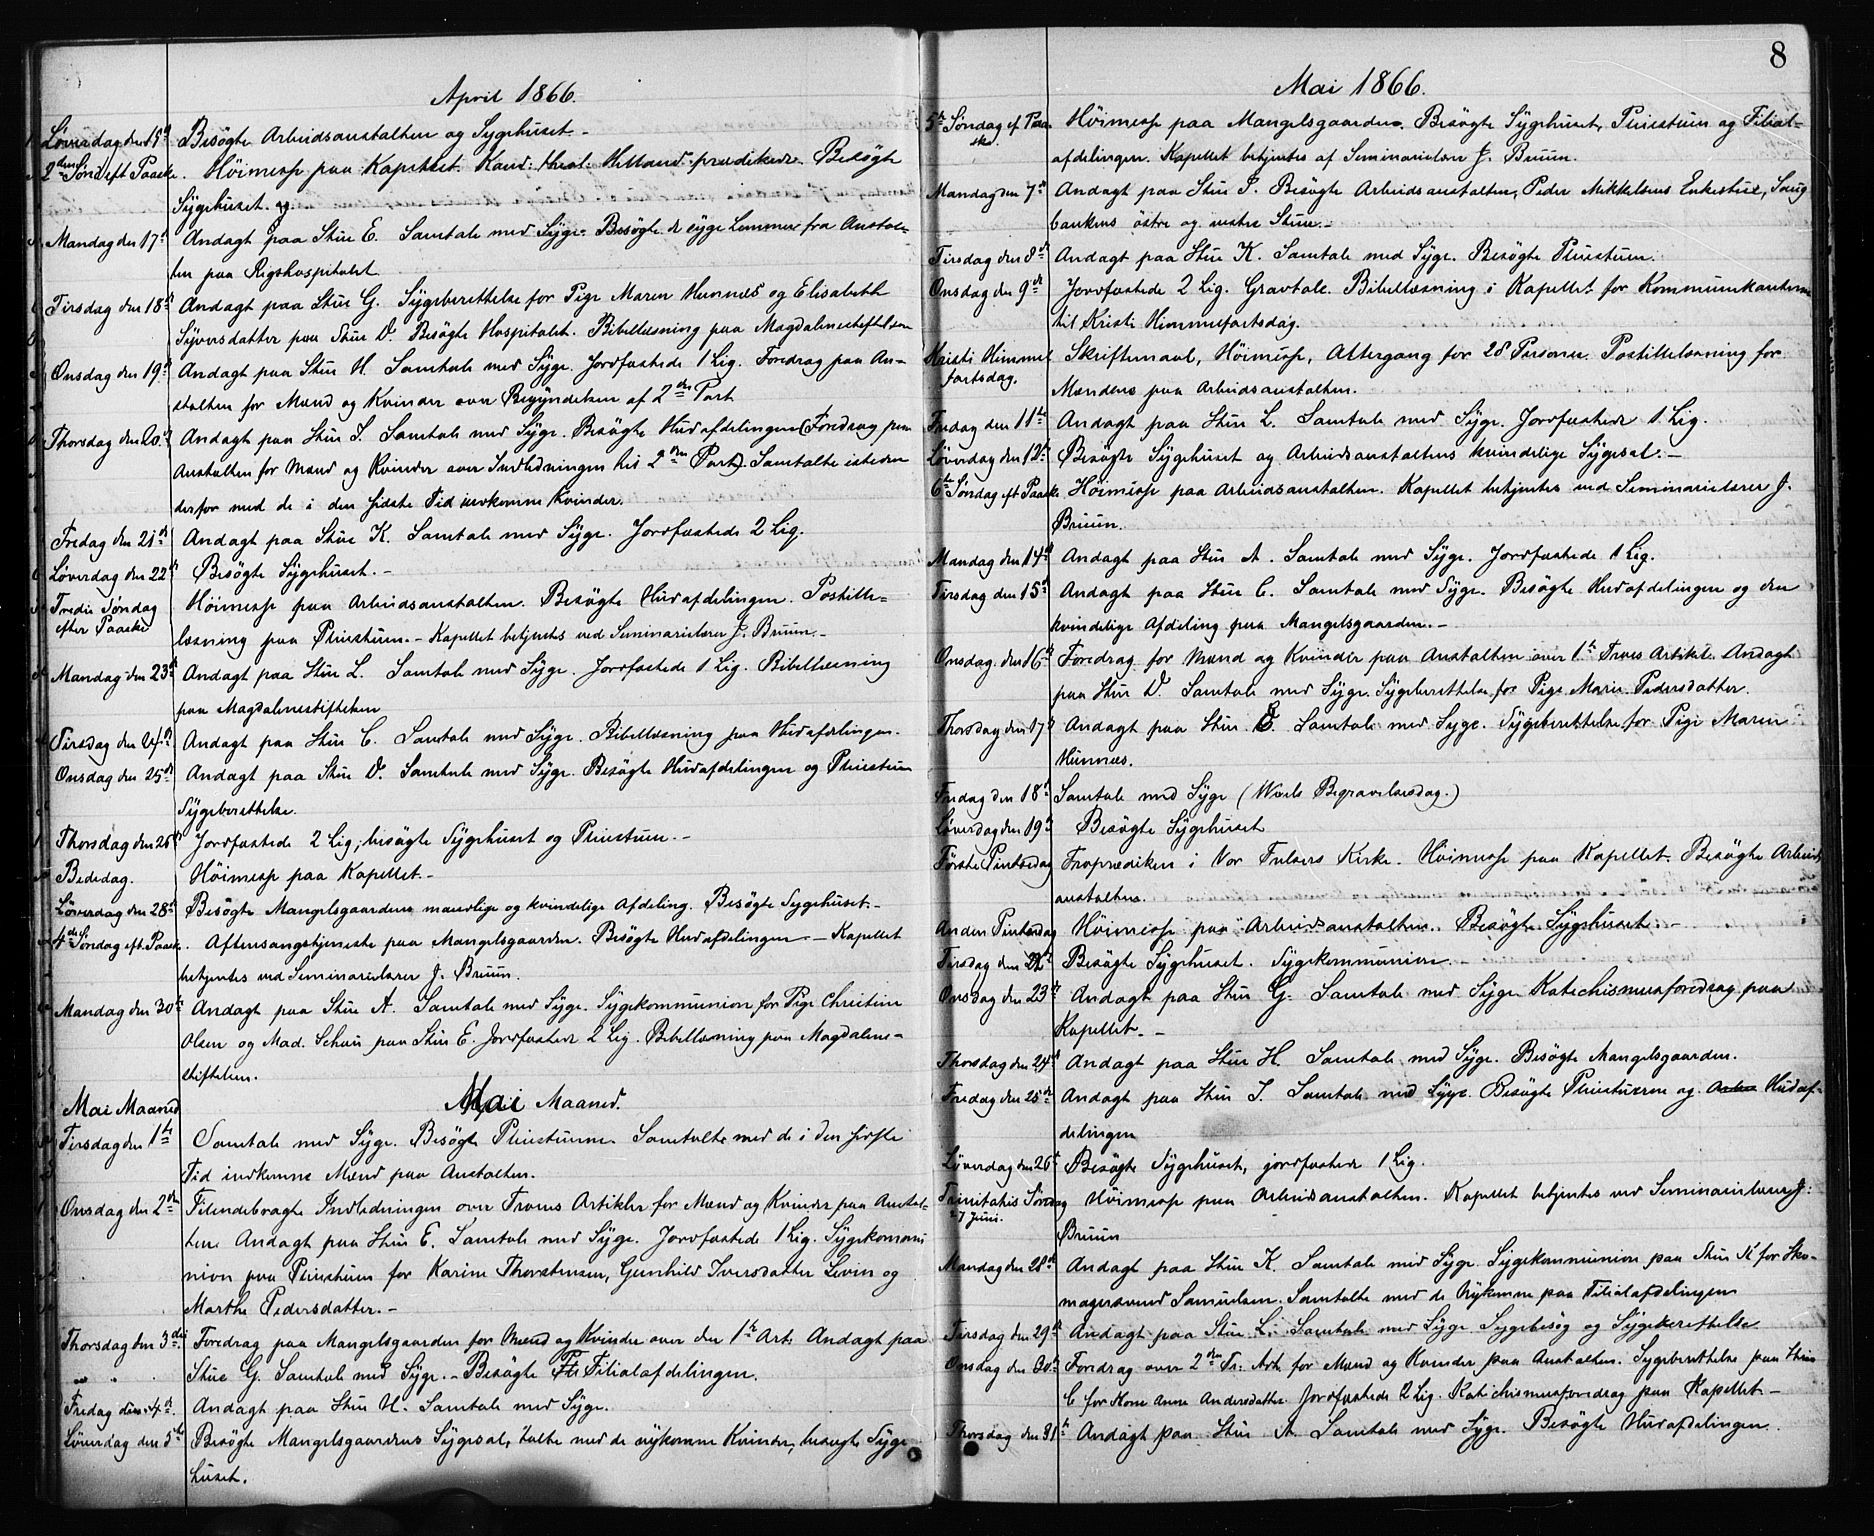 April 1866.
Løverdag den 15de Besøgte Arbeidsanstalten og Sygehuset.-
2den Sønd eft Paaske. Høimesse paa Kapellet. Kand: theol: Helland prædikede. Besøgte
Sygehuset.
Mandag den 17de Andagt paa Stue E. Samtale med Syge. Besøgte de syge Lemmer fra Anstal-
ten paa Rigshospitalet
Tirsdag den 18de Andagt paa Stue G. Sygeberettelse for Pige Maren Hunnæs og Elisabeth
Syversdatter paa Stue D. Besøgte Hospitalet. Bibellæsning paa Magdalenestiftelsen
Onsdag den 19de Andagt paa Stue H. Samtale med Syge. Jordfæstede 1 Lig. Foredrag paa An-
stalten for Mænd og Kvinder over Begyndelsen af 2den Part
Thorsdag den 20de Andagt paa Stue I. Samtale med Syge. Besøgte Hudafdelingen (Foredrag paa
Anstalten for Mænd og Kvinder over Indledningen til 2den Part). Samtalte isteden
derfor med de i den sidste Tid indkomne Kvinder.
Fredag den 21de Andagt paa Stue K. Samtale med Syge. Jordfæstede 2 Lig.
Løverdag den 22de Besøgte Sygehuset.-
Tredie Søndag efter Paaske Høimesse paa Arbeidsanstalten. Besøgte Hudafdelingen. Postille-
læsning paa Pleiestuen.- Kapellet betjentes ved Seminarielærer J. Bruun.-
Mandag den 23de Andagt paa Stue L. Samtale med Syge. Jordfæstede 1 Lig. Bibellæsning
paa Magdalenestiftelsen
Tirsdag den 24de Andagt paa Stue C. Samtale med Syge. Bibellæsning paa Hudafdelingen.
Onsdag den 25de Andagt paa Stue D. Samtale med Syge. Besøgte Hudafdelingen og Pleiestuen
Sygeberettelse.
Thorsdag den 26de Jordfæstede 2 Lig; besøgte Sygehuset og Pleiestuen.-
Bededag. Høimesse paa Kapellet.-
Løverdag den 28de Besøgte Mangelsgaardens mandlige og kvindelige Afdeling. Besøgte Sygehuset.-
4de Søndag eft. Paaske. Aftensangstjeneste paa Mangelsgaarden. Besøgte Hudafdelingen.- Kapellet
betjentes ved Seminarielærer J. Bruun.
Mandag den 30te Andagt paa Stue A. Samtale med Syge. Sygekommunion for Pige Christine
Olsen og Mad. Schau paa Stue E. Jordfæstede 2 Lig. Bibellæsning paa Magdalene-
stiftelsen.
Mai Maaned Mai Maaned.
Tirsdag den 1te Samtale med Syge. Besøgte Pleiestuen. Samtalte med de i den sidste
Tid indkomne Mænd paa Anstalten.
Onsdag den 2den Tilendebragte Indledningen over Troens Artikler for Mænd og Kvinder paa Anstal-
ten. Andagt paa Stue E. Samtale med Syge. Jordfæstede 1 Lig. Sygekommu
nion paa Pleiestuen for Karine Thorstensen, Gunhild Iversdatter Levin og
Marthe Pedersdatter.-
Thorsdag den 3die Foredrag paa Mangelsgaarden for Mænd og Kvinder over den 1te Art. Andagt paa
" " Stue G. Samtale med Syge.- Besøgte Filialafdelingen.
Fredag den 4de Andagt paa Stue H. Samtale med Syge.
Løverdag den 5te Besøgte Mangelsgaardens Sygesal, talte med de nykomne Kvinder, besøgte Syge
huset.
8
Mai 1866.
5te Søndag ef. Paaske. Høimesse paa Mangelsgaarden. Besøgte Sygehuset, Pleiestuen og Filial-
afdelingen. Kapellet betjentes af Seminarielærer J. Bruun.
Mandag den 7de Andagt paa Stue I. Besøgte Arbeidsanstalten, Peder Mikkelsens Enkestue, Saug
bankens østre og vestre Stue.-
Tirsdag den 8de Andagt paa Stue K. Samtale med Syge. Besøgte Pleiestuen.
Onsdag den 9de Jordfæstede 2 Lig. Gravtale. Bibellæsning i Kapellet for Kommunikanterne
til Kristi Himmelfartsdag.
Kristi Himmelfartsdag. Skriftemaal, Høimesse, Altergang for 28 Personer. Postillelæsning for
Mændene paa Arbeidsanstalten.
Fredag den 11te Andagt paa Stue L. Samtale med Syge. Jordfæstede 1 Lig.
Løverdag den 12te Besøgte Sygehuset og Arbeidsanstaltens kvindelige Sygesal.-
6te Søndag eft Paaske Høimesse paa Arbeidsanstalten. Kapellet betjentes ved Seminarielærer J.
Bruun.
Mandag den 14de Andagt paa Stue A. Samtale med Syge. Jordfæstede 1 Lig.
Tirsdag den 15de Andagt paa Stue C. Samtale med Syge. Besøgte Hudafdelingen og den
kvindelige Afdeling paa Mangelsgaarden.-
Onsdag den 16de Foredrag for Mænd og Kvinder paa Anstalten over 1te Troes Artikel. Andagt
paa Stue D. Samtale med Syge. Sygeberettelse for Pige Marie Pedersdatter.
Thorsdag den 17de Andagt paa Stue E. Samtale med Syge. Sygeberettelse for Pige Maren
Hunnæs.
Fredag den 18de Samtale med Syge ( Begravelsesdag.)
Løverdag den 19de Besøgte Sygehuset
Første Pintsedag Froprædiken i Vor Frelsers Kirke. Høimesse paa Kapellet. Besøgte Arbeids
anstalten.
Anden Pintsedag Høimesse paa Arbeidsanstalten. Besøgte Sygehuset.-
Tirsdag den 22de Besøgte Sygehuset. Sygekommunion.-
Onsdag den 23de Andagt paa Stue G. Samtale med Syge. Katechismusforedrag paa
Kapellet.-
Thorsdag den 24de Andagt paa Stue H. Samtale med Syge. Besøgte Mangelsgaarden.
Fredag den 25de Andagt paa Stue I. Samtale med Syge. Besøgte Pleiestuerne og Hudaf-
delingen
Løverdag den 26de Besøgte Sygehuset, jordfæstede 1 Lig.
Trinitatis Søndag 27 Juni. Høimesse paa Arbeidsanstalten. Kapellet betjentes ved Seminarielærer J.
Bruun
Mandag den 28de Andagt paa Stue K. Samtale med Syge. Sygekommunion paa Stue K for Sko-
magersvend Samuelsen. Samtalte med de Nykomne paa Filialafdelingen
Tirsdag den 29de Andagt paa Stue L. Samtale med Syge Sygebesøg og Sygeberettelse
Onsdag den 30te Foredrag over 2den Tr: Art. for Mænd og Kvinder paa Anstalten. Sygeberettelse paa Stue
C for Kone Anne Andersdatter. Jordfæstede 2 Lig. Katechismusforedrag paa Kapellet.-
Thorsdag den 31te Andagt paa Stue A. Samtale med Syge. Besøgte Hudafdelingen.